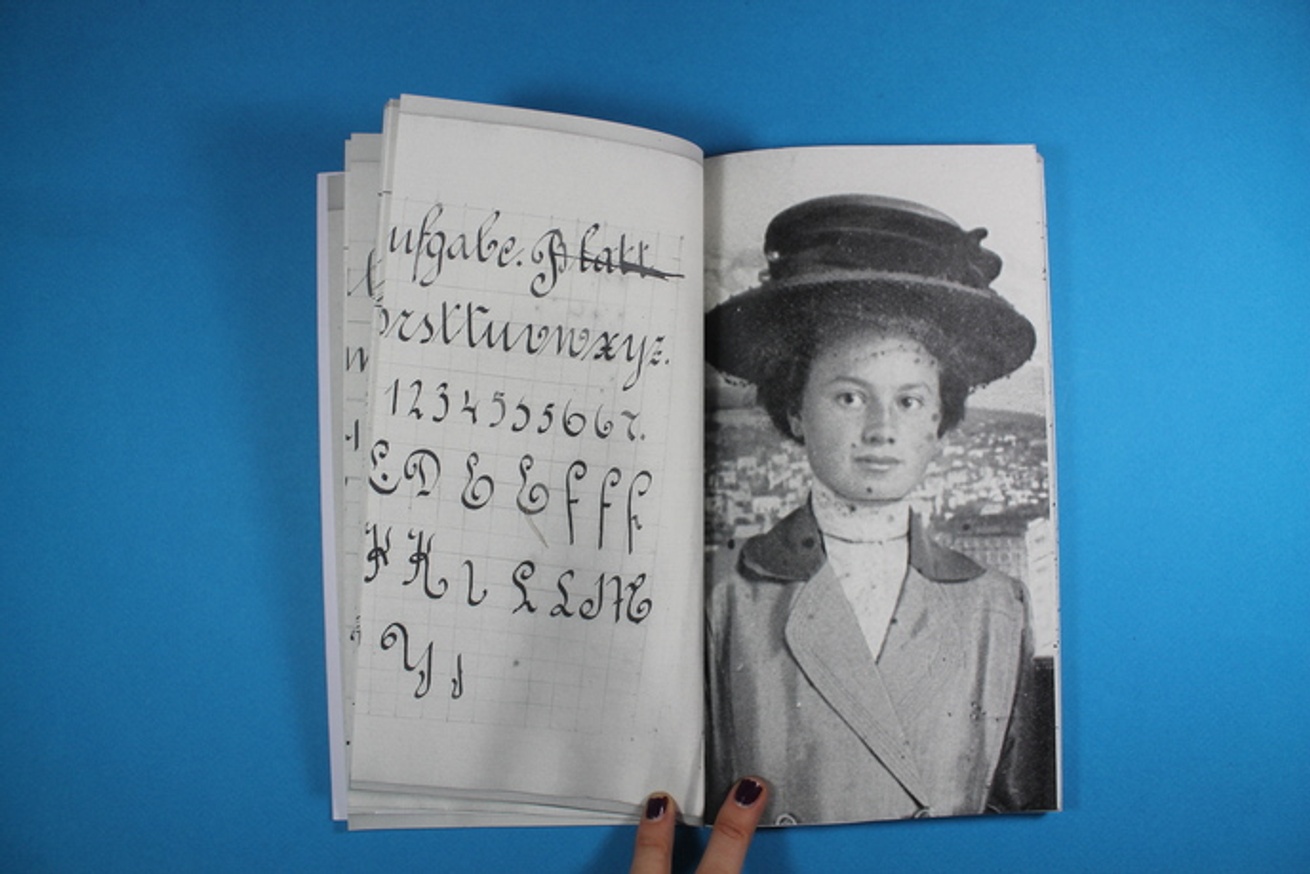 ufgabe. Blatt
rsttuvwxyz.
1 2 3 4 5 5 5 6 6 7.
C D E E f f f
K K l L L M
Y J